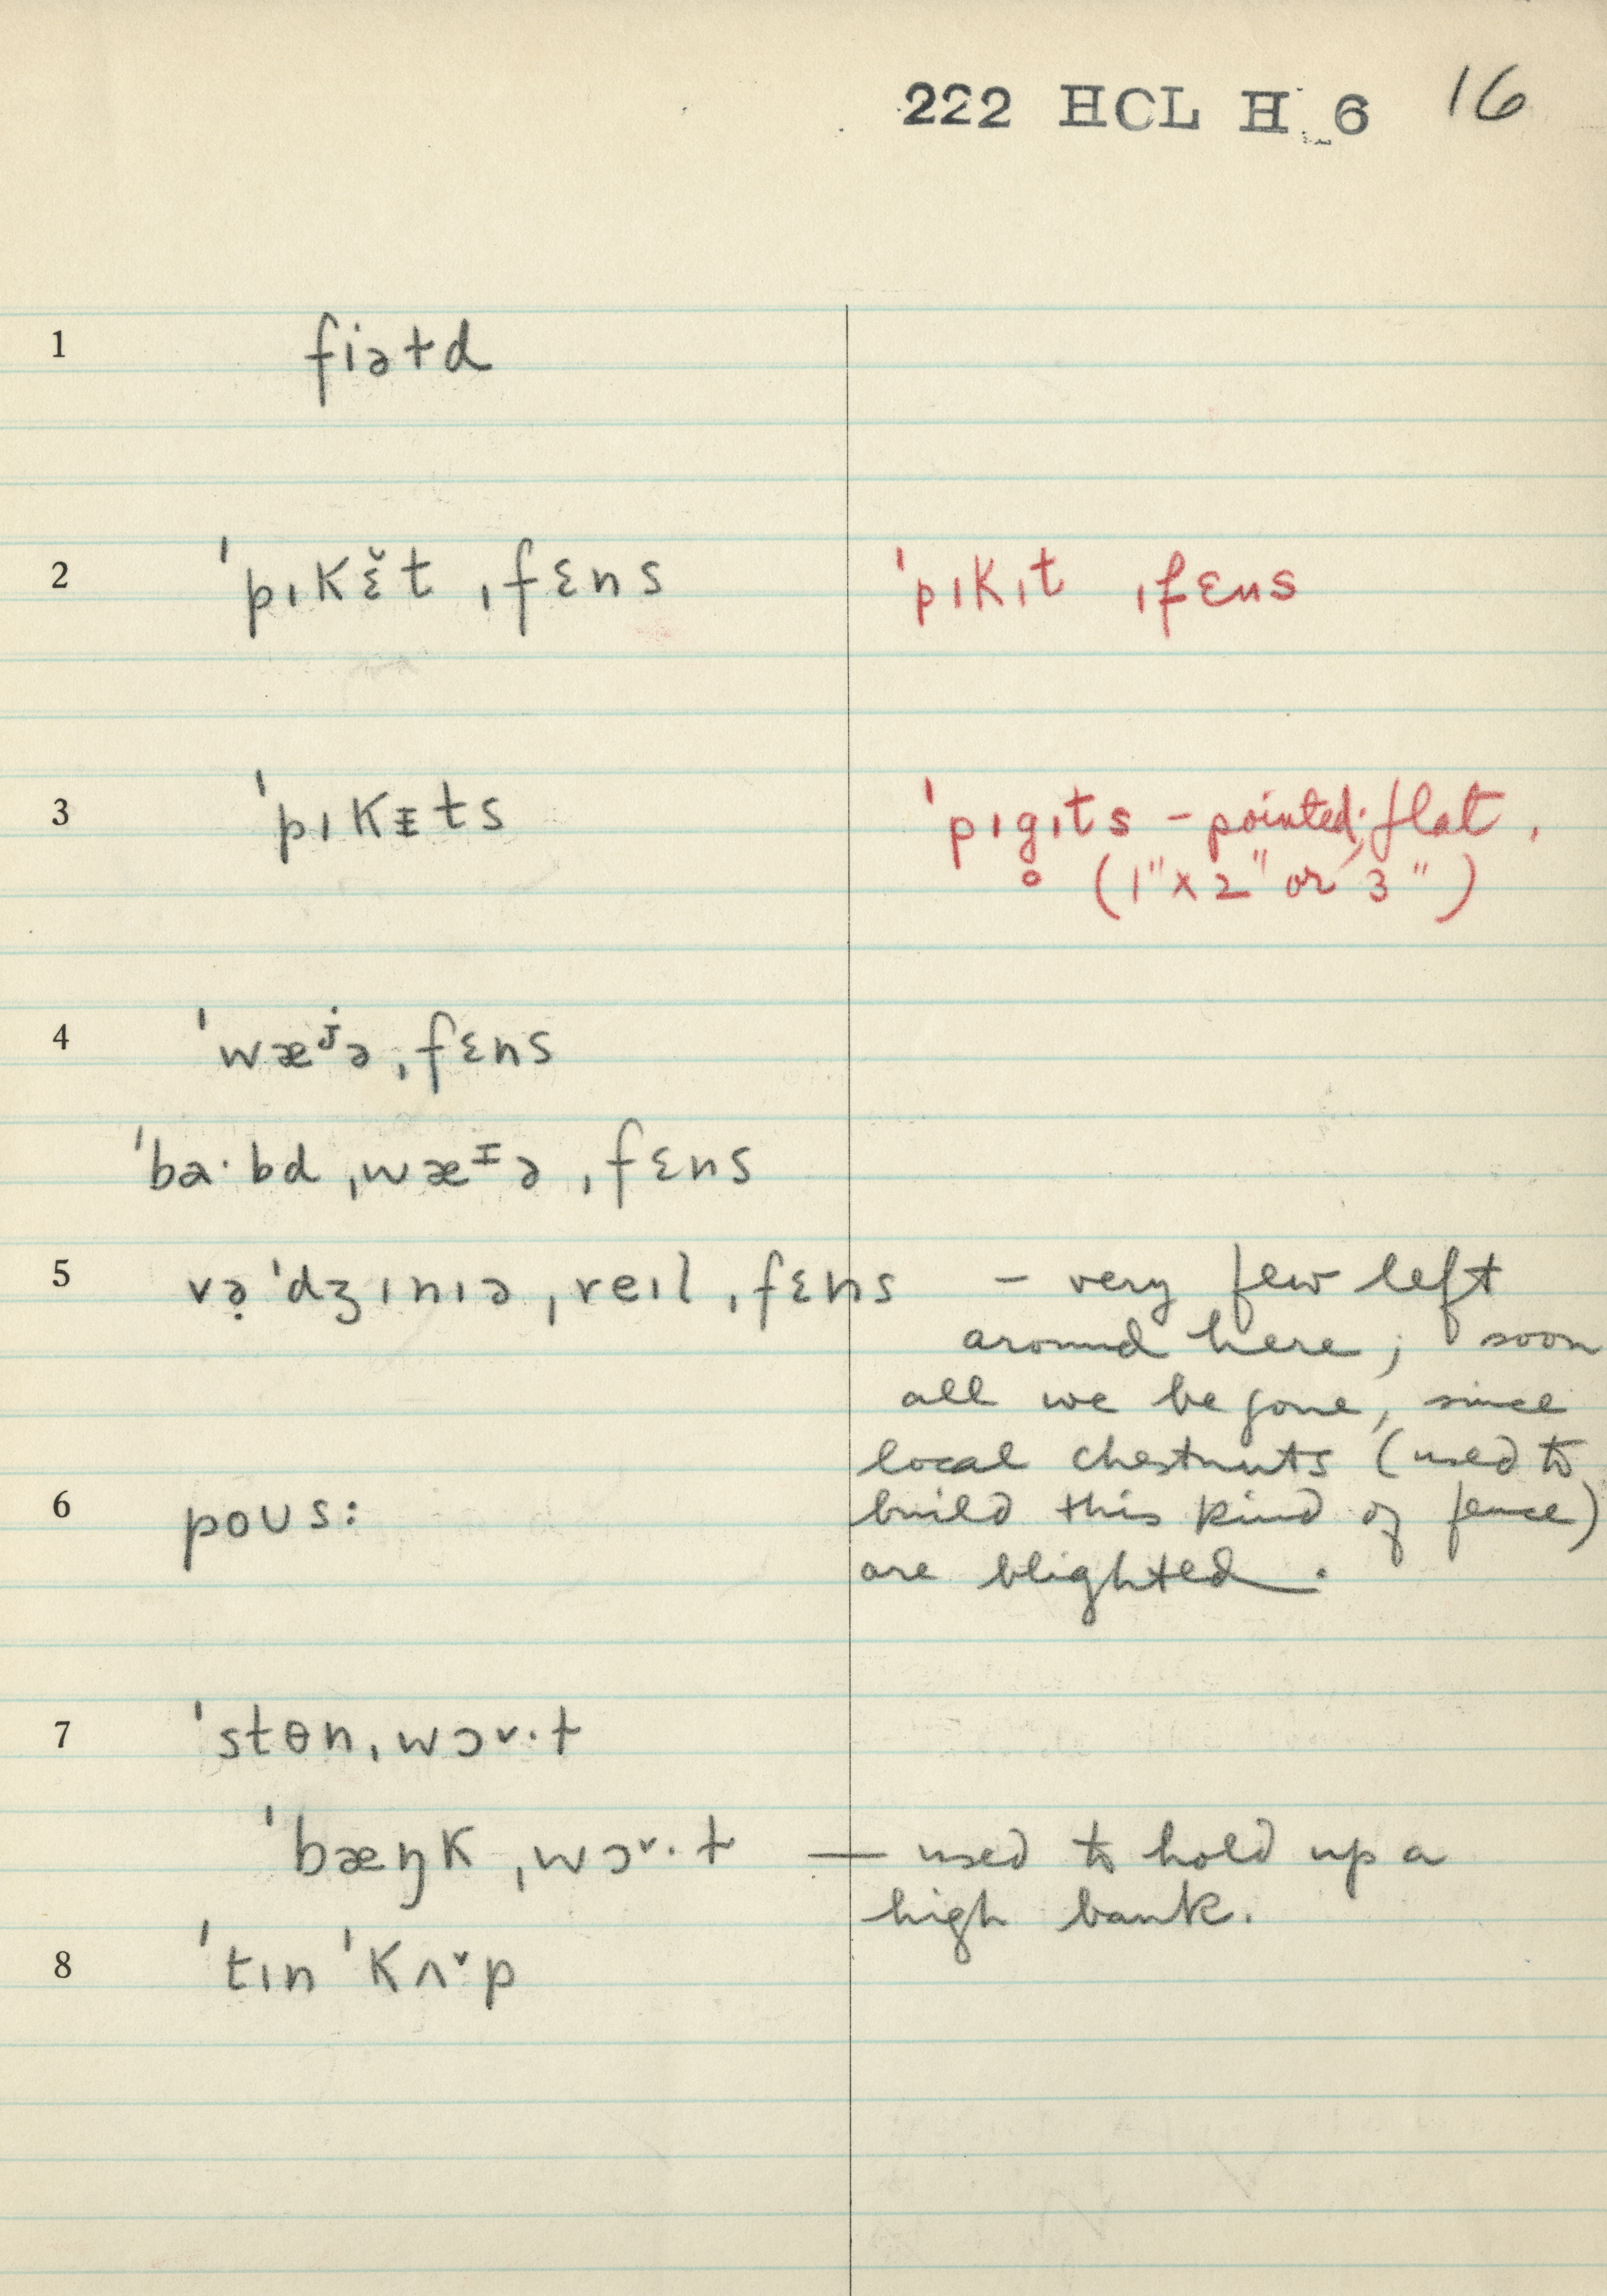 222 HCL H 6 16
1 fiəɫd
2 ˈpɪkɛ̌t ˌfɛns ˈpɪkɪt ˌfɛns
3 ˈpɪkᵻts ˈpɪg̥ɪts – pointed; flat.
(1" x 2" or 3")
4 ˈwæʲə ˌfɛns
ˈba·bd ˌwæᵻə ˌfɛns
5 və̣ˈdʒɪnɪə ˌreɪl ˌfɛns – very few left
around here; soon
all we be gone, since
local chestnuts (used to
6 poʊs: build this kind of fence)
are blighted.
7 ˈstɵn ˌwɔ˅·ɫ
ˈbæŋk ˌwɔ˅·ɫ — used to hold up a
high bank.
8 ˈtɪn ˈkʌ˅p